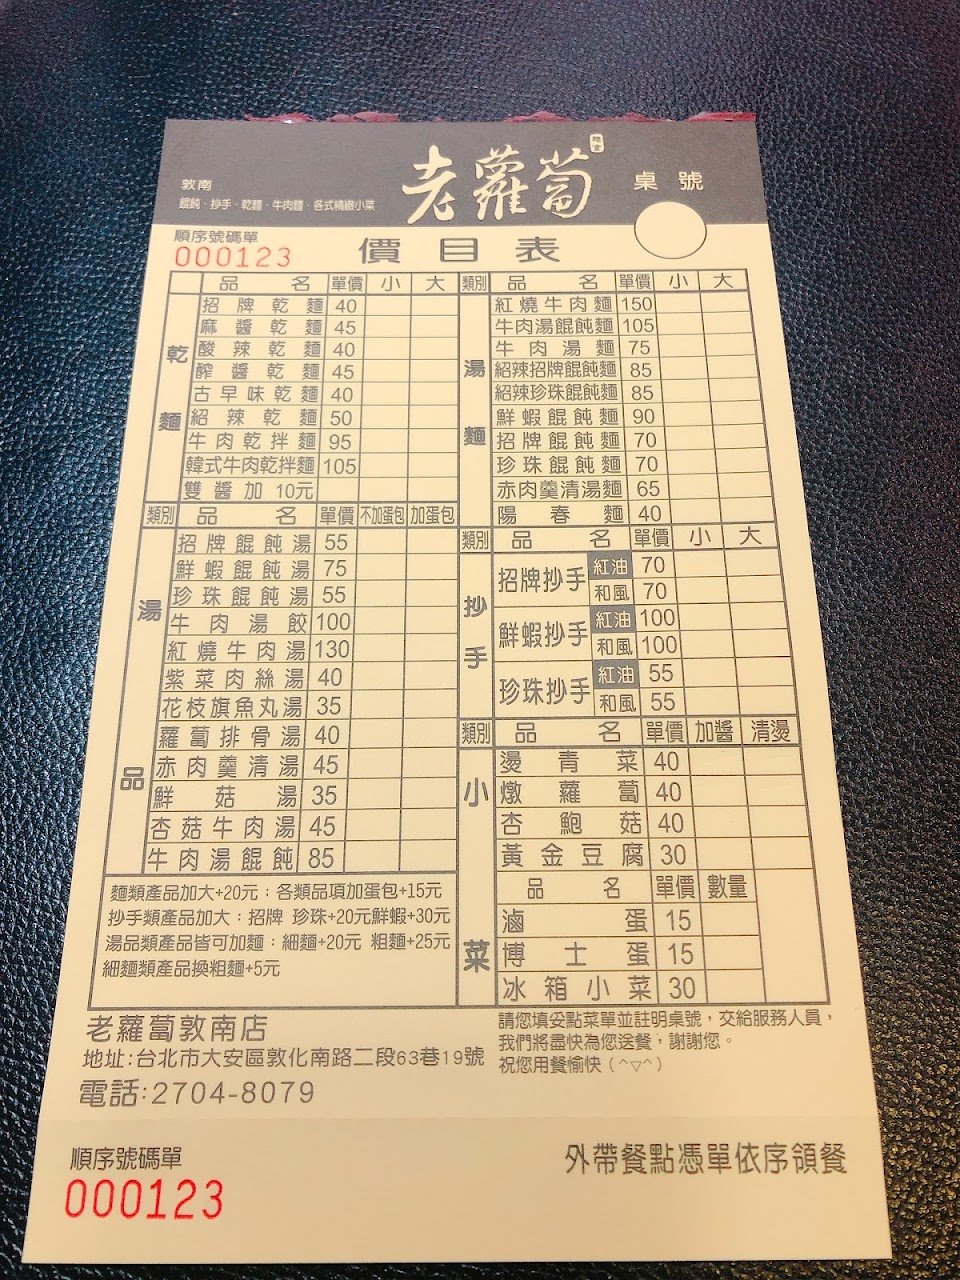 老蘿蔔
麵食
敦南
餛飩．抄手．乾麵．牛肉麵．各式精緻小菜
桌 號
順序號碼單
000123
價目表
品名 單價 小 大
乾麵
招牌乾麵 40
麻醬乾麵 45
酸辣乾麵 40
醡醬乾麵 45
古早味乾麵 40
紹辣乾麵 50
牛肉乾拌麵 95
韓式牛肉乾拌麵 105
雙醬加 10元
類別 品名 單價 不加蛋包 加蛋包
湯品
招牌餛飩湯 55
鮮蝦餛飩湯 75
珍珠餛飩湯 55
牛肉湯餃 100
紅燒牛肉湯 130
紫菜肉絲湯 40
花枝旗魚丸湯 35
蘿蔔排骨湯 40
赤肉羹清湯 45
鮮菇湯 35
杏菇牛肉湯 45
牛肉湯餛飩 85
麵類產品加大+20元：各類品項加蛋包+15元
抄手類產品加大：招牌 珍珠+20元鮮蝦+30元
湯品類產品皆可加麵：細麵+20元 粗麵+25元
細麵類產品換粗麵+5元
類別 品名 單價 小 大
湯麵
紅燒牛肉麵 150
牛肉湯餛飩麵 105
牛肉湯麵 75
紹辣招牌餛飩麵 85
紹辣珍珠餛飩麵 85
鮮蝦餛飩麵 90
招牌餛飩麵 70
珍珠餛飩麵 70
赤肉羹清湯麵 65
陽春麵 40
類別 品名 單價 小 大
抄手
招牌抄手 紅油 70
和風 70
鮮蝦抄手 紅油 100
和風 100
珍珠抄手 紅油 55
和風 55
類別 品名 單價 加醬 清燙
小菜
燙青菜 40
燉蘿蔔 40
杏鮑菇 40
黃金豆腐 30
品名 單價 數量
滷蛋 15
博士蛋 15
冰箱小菜 30
老蘿蔔敦南店
地址:台北市大安區敦化南路二段63巷19號
電話:2704-8079
請您填妥點菜單並註明桌號，交給服務人員，
我們將盡快為您送餐，謝謝您。
祝您用餐愉快（^▽^）
順序號碼單
000123
外帶餐點憑單依序領餐